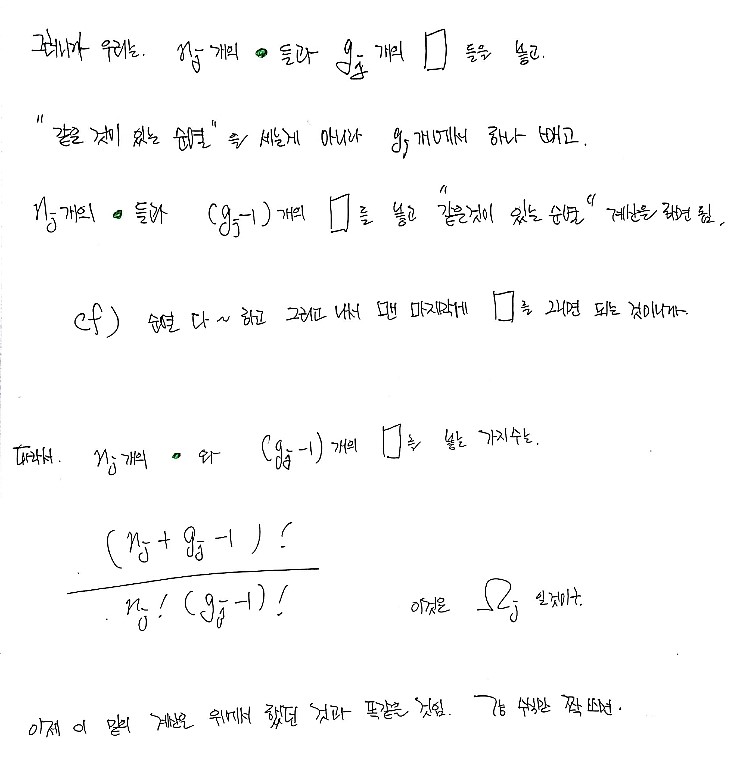 그러니까 우리는. nⱼ개의 ● 들과 gⱼ 개의 □ 들을 놓고.
"같은 것이 있는 순열"을 세는게 아니라 gⱼ개에서 하나 빼고.
nⱼ개의 ● 들과 (gⱼ-1) 개의 □를 놓고 "같은것이 있는 순열" 계산을 하면 됨.
cf) 순열 다~ 하고 그리고 나서 맨 마지막에 □를 그리면 되는 것이니까
따라서. nⱼ개의 ● 와 (gⱼ-1) 개의 □을 놓는 가지수는.
(nⱼ + gⱼ - 1)!
nⱼ! (gⱼ-1)! 이것은 Ωⱼ 일것이구.
이제 이 밑의 계산은 위에서 했던 것과 똑같은 것임. 걍 수식만 쫙 쓰면.